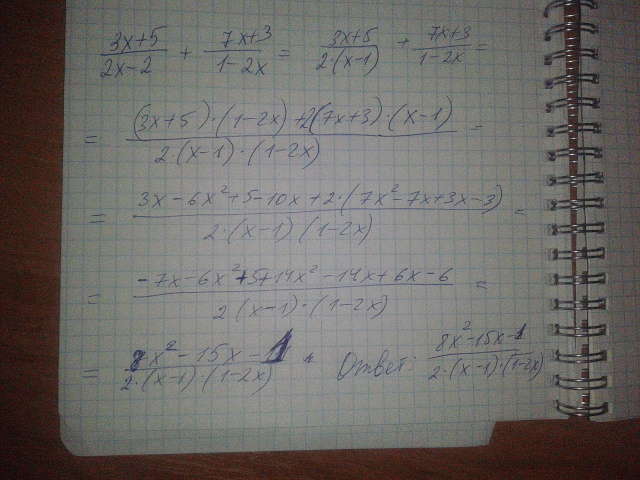 (3x+5)/(2x-2) + (7x+3)/(1-2x) = (3x+5)/(2·(x-1)) + (7x+3)/(1-2x) =
= ((3x+5)·(1-2x)+2(7x+3)·(x-1))/(2·(x-1)·(1-2x)) =
= (3x-6x²+5-10x+2·(7x²-7x+3x-3))/(2·(x-1)(1-2x)) =
= (-7x-6x²+5+14x²-14x+6x-6)/(2(x-1)·(1-2x)) =
= (8x²-15x-1)/(2·(x-1)·(1-2x)). Ответ: (8x²-15x-1)/(2·(x-1)·(1-2x))